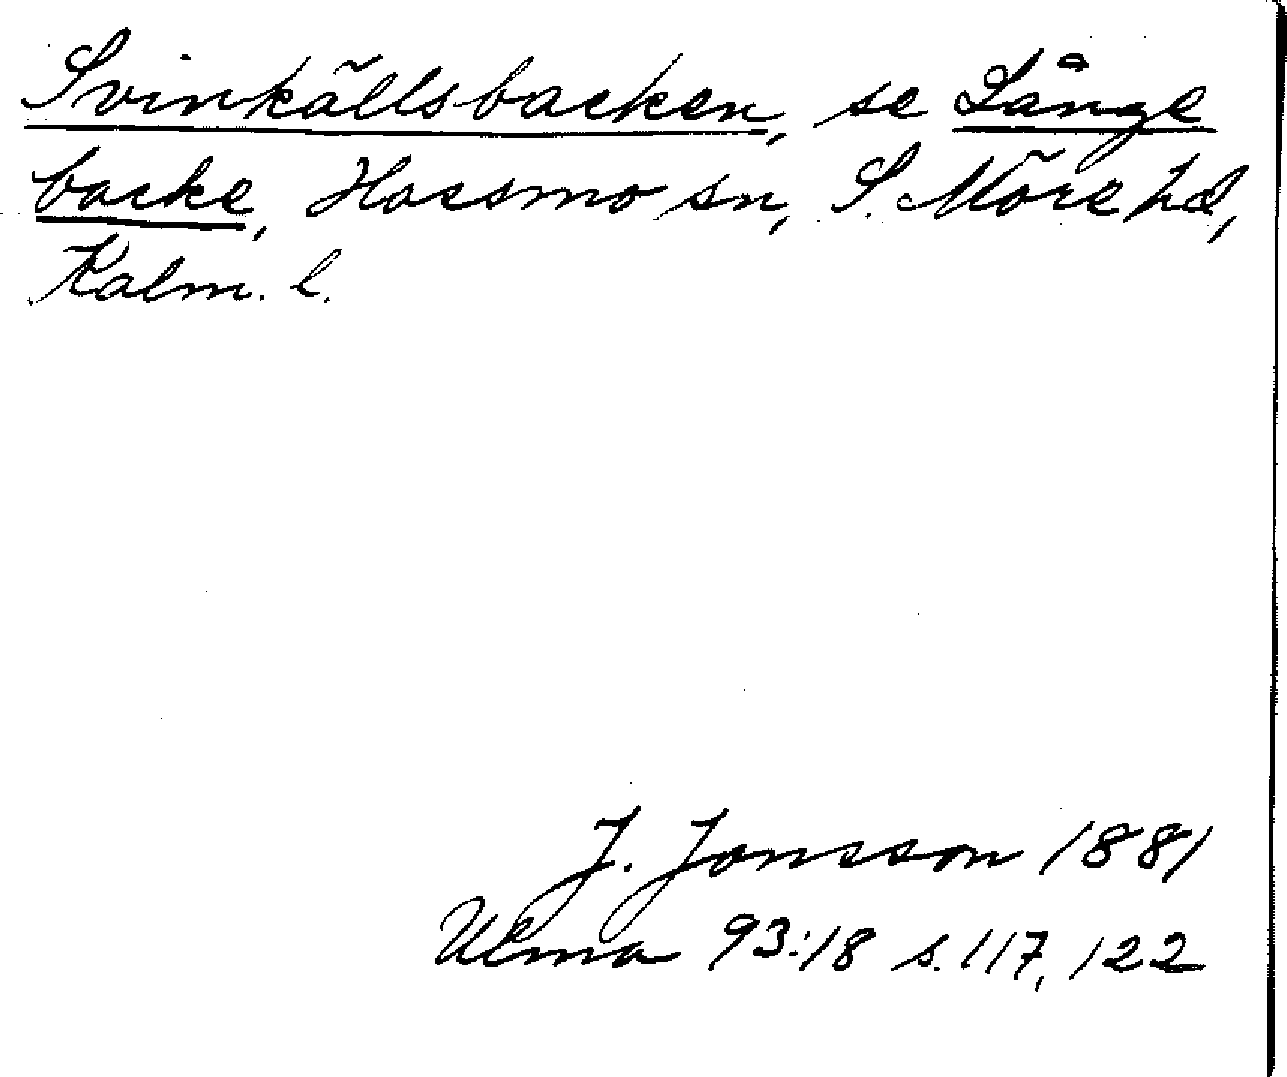 Svinkällsbacken, se Långe
backe, Hossmo sn, S. Möre hd,
Kalm. l.
J. Jonsson 1881
Ulma 93:18 s. 117, 122